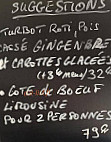 SUGGESTIONS
TURBOT ROTI, POIS
CASSÉ GINGENBRE
ET CAROTTES GLACÉES
(+3€ MENU) 32€
• COTE DE BOEUF
LIMOUSINE
POUR 2 PERSONNES
79€